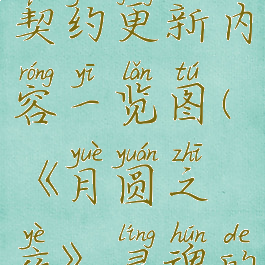 契约更新内
róng yī lǎn tú
容一览图(
yuè yuán zhī
《月圆之
yè líng hún de
夜》灵魂的